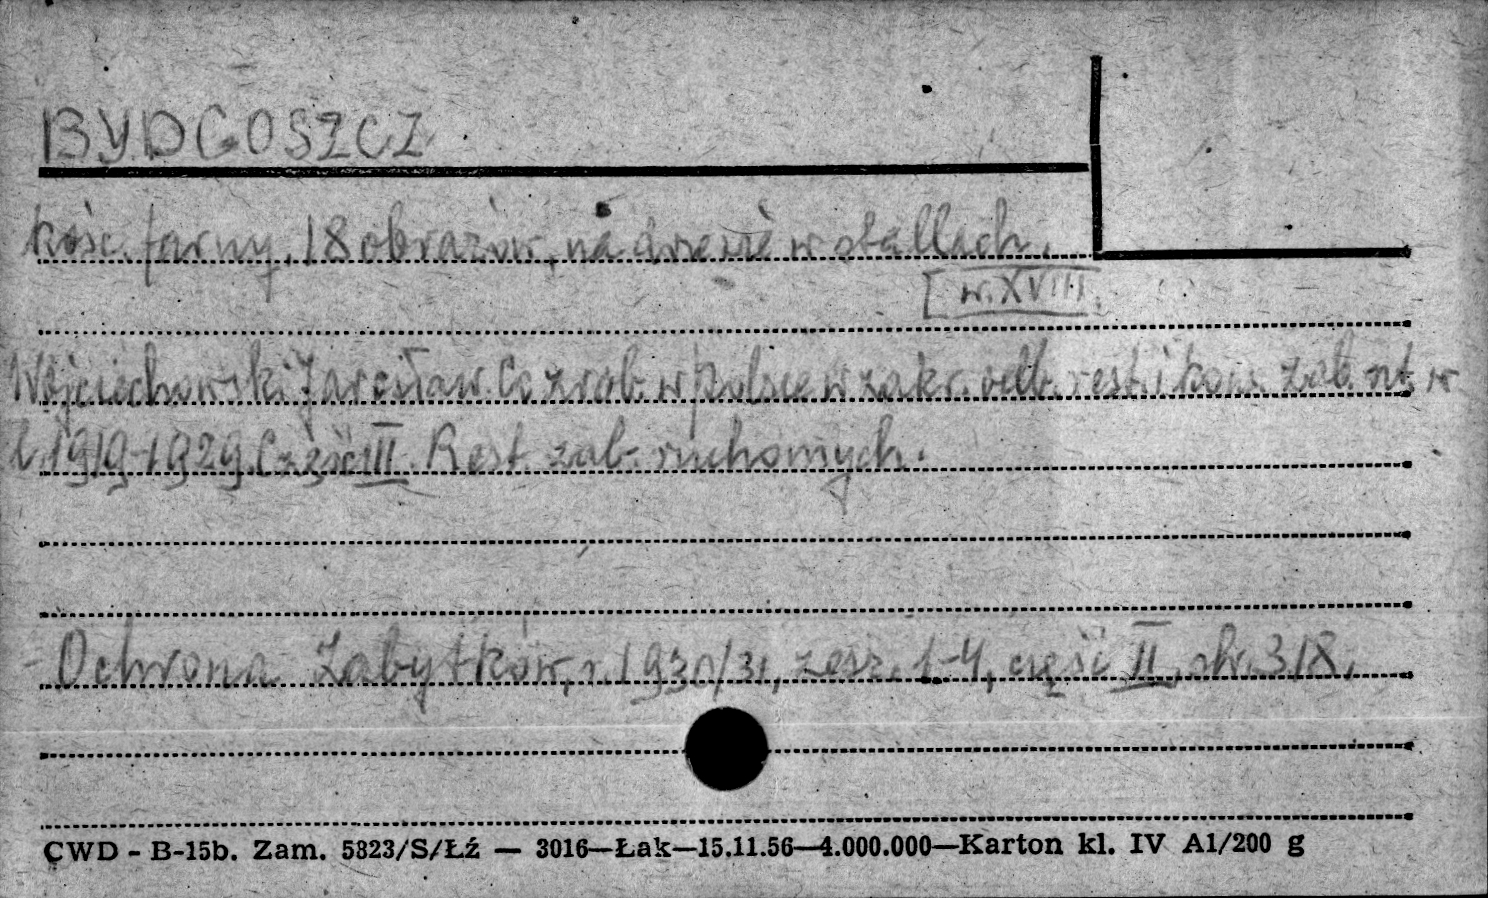 BYDGOSZCZ
kość. farny. 18 obrazów, na drzewie w stallach.
[w. XVIII.
Wojciechowski Jarosław. Co zrob. w Polsce w zakr. odb. rest. i kons. zab. szt. w
l. 1919-1929. Część III. Rest. zab. ruchomych.
- Ochrona Zabytków, r. 1930/31, zesz. 1-4, część II, str. 318.
CWD - B-15b. Zam. 5823/S/Łź — 3016—Łak—15.11.56—4.000.000—Karton kl. IV A1/200 g